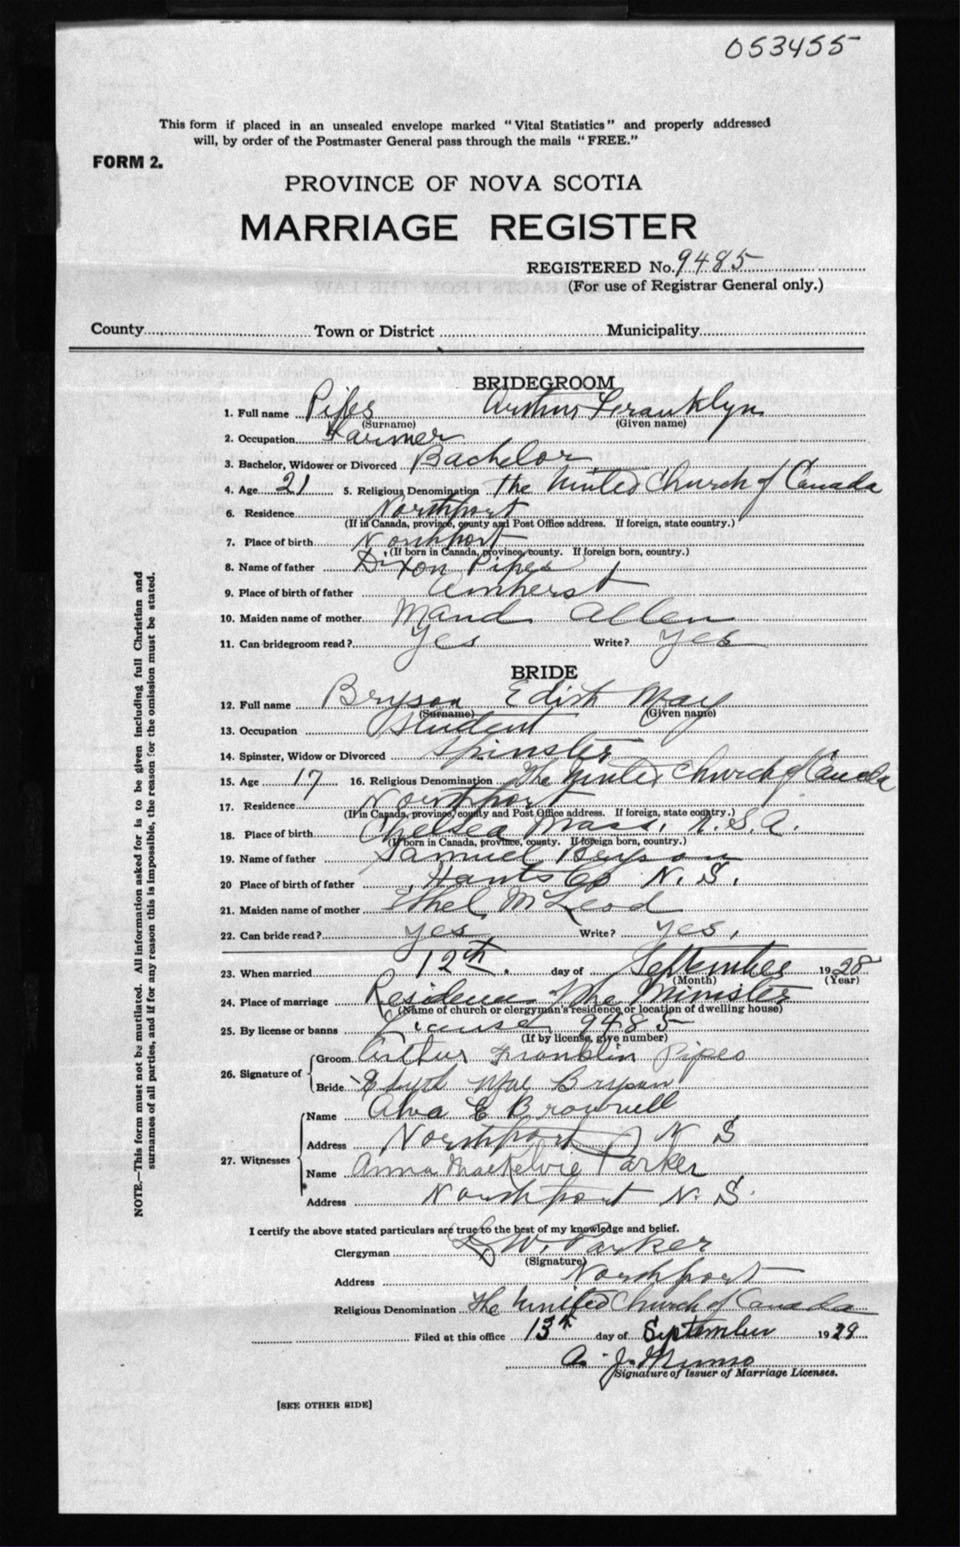 053455
This form if placed in an unsealed envelope marked "Vital Statistics" and properly addressed
will, by order of the Postmaster General pass through the mails "FREE."
FORM 2.
PROVINCE OF NOVA SCOTIA
MARRIAGE REGISTER
REGISTERED No. 9485
(For use of Registrar General only.)
County Town or District Municipality
BRIDEGROOM
1. Full name Pipes Arthur Franklyn
(Surname) (Given name)
2. Occupation Farmer
3. Bachelor, Widower or Divorced Bachelor
4. Age 21 5. Religious Denomination The United Church of Canada
6. Residence Northport
(If in Canada, province, county and Post Office address. If foreign, state country.)
7. Place of birth Northport
(If born in Canada, province, county. If foreign born, country.)
8. Name of father Dixon Pipes
9. Place of birth of father Amherst
10. Maiden name of mother Maud Allen
11. Can bridegroom read? Yes Write? Yes
BRIDE
12. Full name Bryson Edith May
(Surname) (Given name)
13. Occupation Student
14. Spinster, Widow or Divorced Spinster
15. Age 17 16. Religious Denomination The United Church of Canada
17. Residence Northport
(If in Canada, province, county and Post Office address. If foreign, state country.)
18. Place of birth Chelsea Mass. U.S.A.
(If born in Canada, province, county. If foreign born, country.)
19. Name of father Samuel Bryson
20 Place of birth of father Hants Co N.S.
21. Maiden name of mother Ethel McLeod
22. Can bride read? Yes, Write? Yes,
23. When married 12th. day of September 1928
(Month) (Year)
24. Place of marriage Residence The Minister
(Name of church or clergyman's residence or location of dwelling house)
25. By license or banns License 9485
(If by license, give number)
26. Signature of Groom Arthur Franklin Pipes
Bride Edyth Mae Bryson
27. Witnesses Name Alva E Brownell
Address Northport N S
Name Anna MacKelvie Parker
Address Northport N.S.
I certify the above stated particulars are true to the best of my knowledge and belief.
Clergyman W. Parker
(Signature)
Address Northport
Religious Denomination The United Church of Canada
Filed at this office 13th day of September 1928
A. J. Munro
Signature of Issuer of Marriage Licenses.
[SEE OTHER SIDE]
NOTE.—This form must not be mutilated. All information asked for is to be given including full Christian and
surnames of all parties, and if for any reason this is impossible, the reason for the omission must be stated.